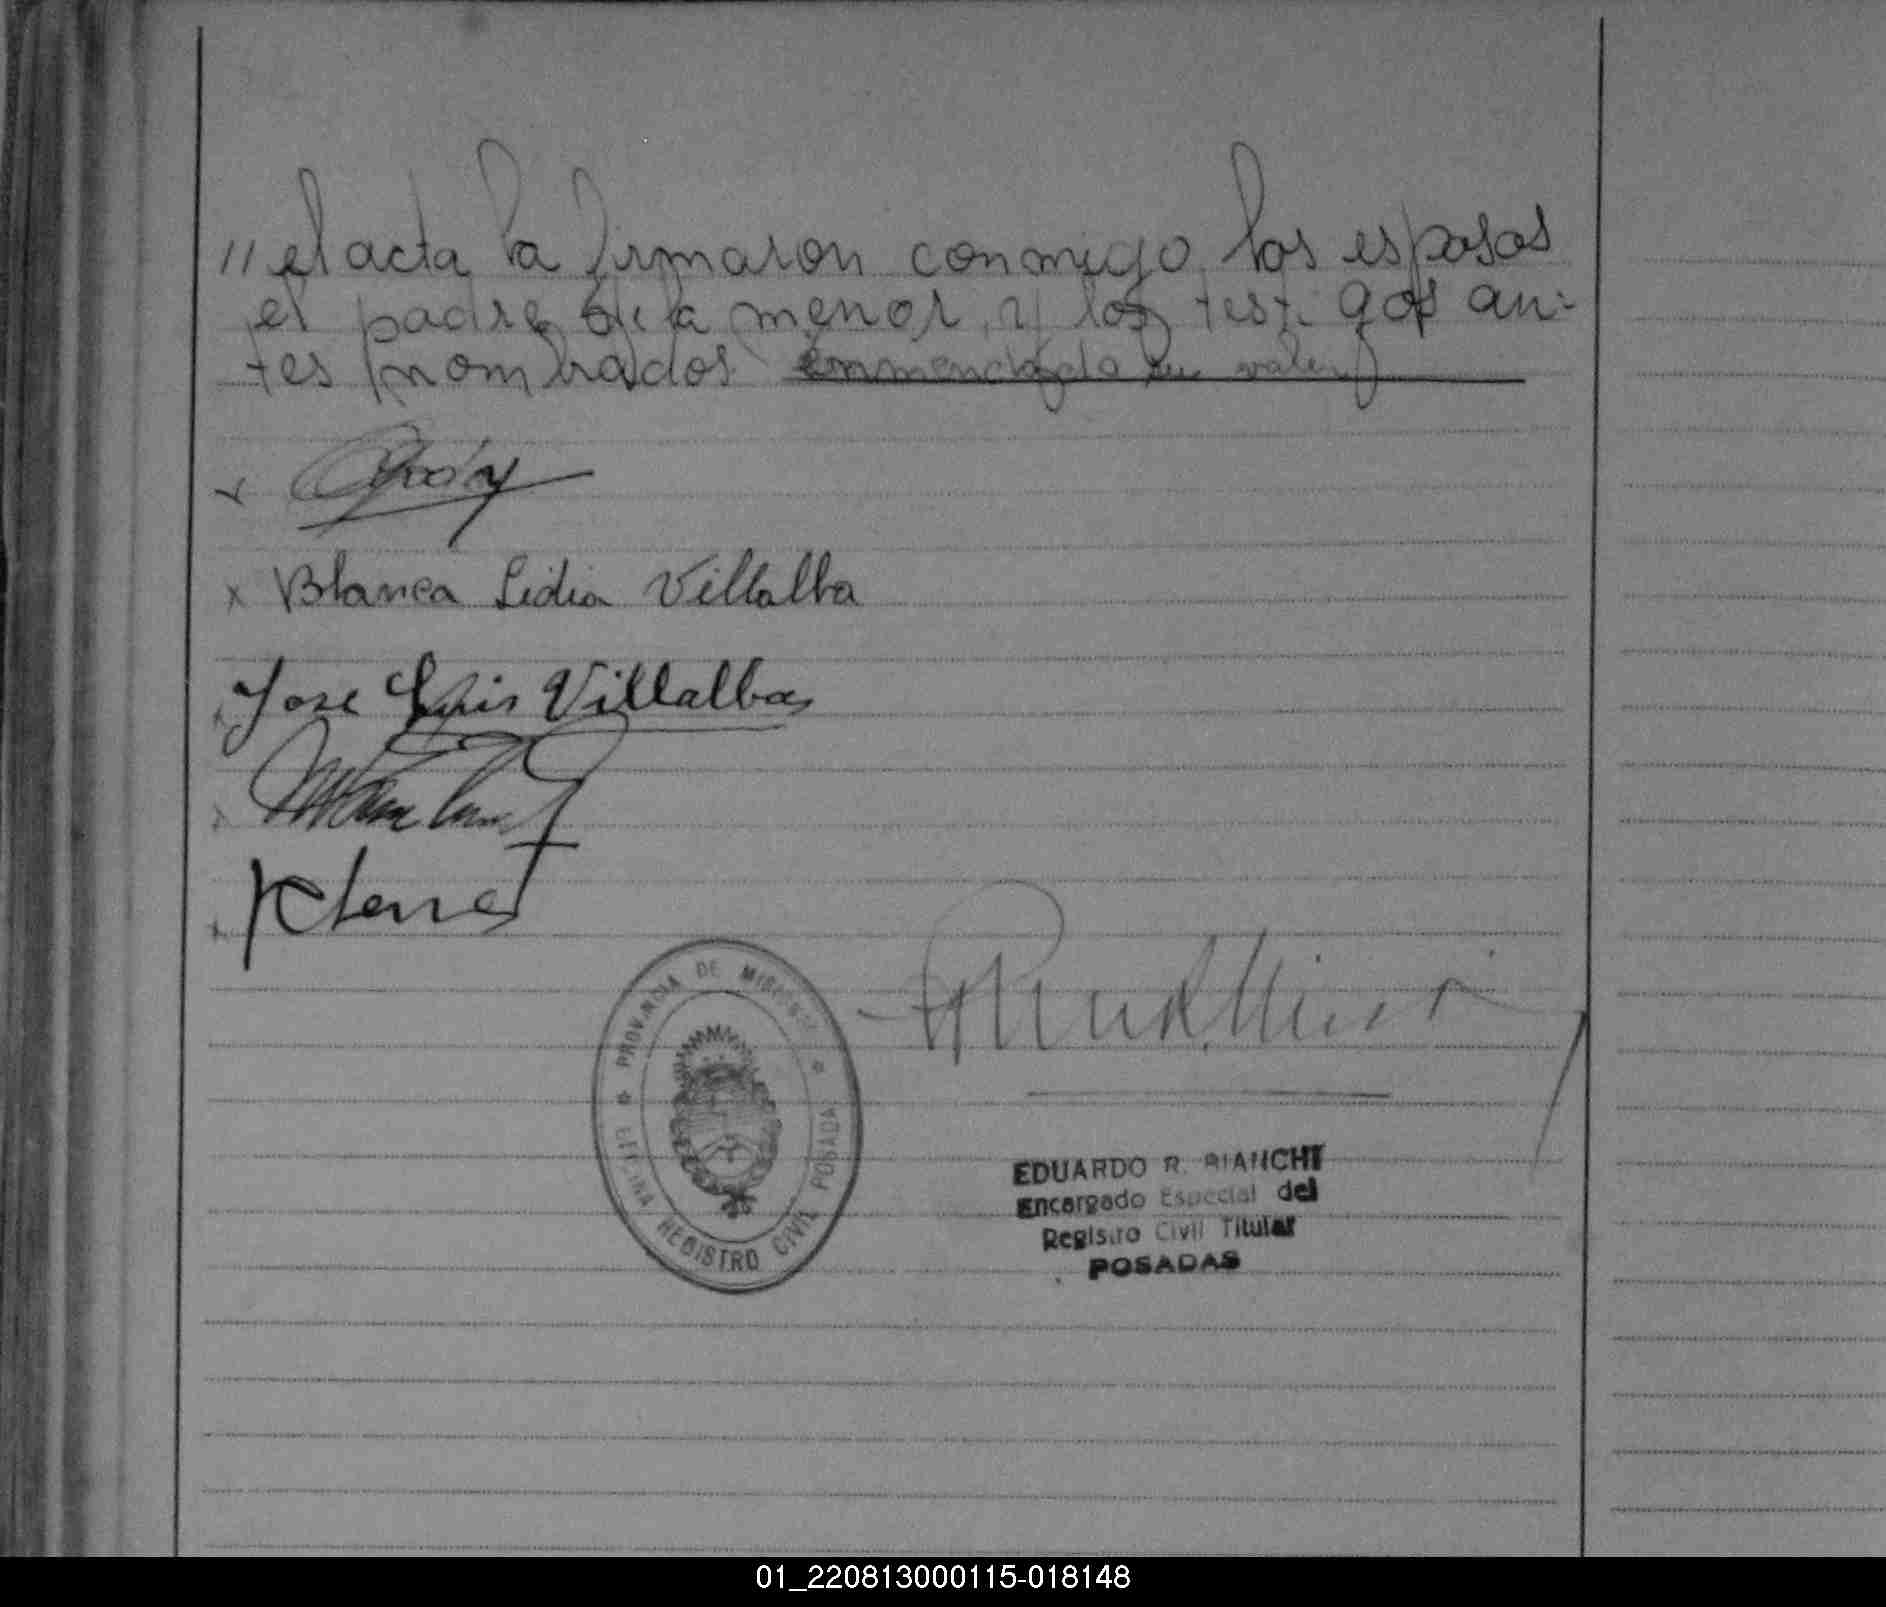 // el acta la firmaron conmigo los esposos
el padre de la menor, y los testigos an-
tes nombrados enmendado su vale
x
x Blanca Lidia Villalba
Jose Luis Villalba
x
PROVINCIA DE MISIONES
REGISTRO CIVIL POSADAS
EDUARDO R. BIANCHI
Encargado Especial del
Registro Civil Titular
POSADAS
01_220813000115-018148